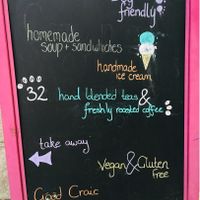 friendly!
homemade
soup + sandwiches
handmade
ice cream
32
hand blended teas &
freshly roasted coffee
take away
Vegan & Gluten
free
Good Craic